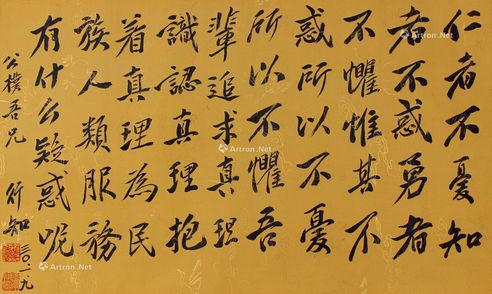 仁者不憂知
者不惑勇者
不懼惟其不
惑所以不憂
所以不懼吾
輩追求真理
識認真理抱
着真理為民
族人類服務
有什么疑惑呢
公樸吾兄
行知 三〇.一.九
Artron.Net
Artron.Net
Artron.Net
Artron.Net
Artron.Net